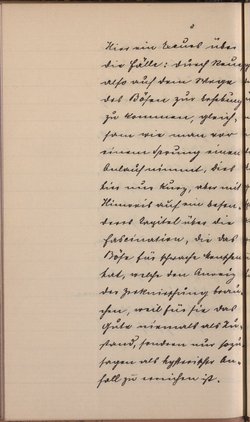 Hier ein Neues über
die Fälle: durch Reue,
also auf dem Wege
des Bösen zur Erhebung
zu kommen, gleich,
sam wie man vor
einem Sprung einen
Anlauf nimmt, dies
hier nur kurz, aber mit
Hinweis auf ein beson,
deres Kapitel über die
Fascination, die das
Böse für schwache Menschen
hat, welche den Anreiz
der Zerknirschung brau,
chen, weil für sie das
Gute niemals als Zu,
stand, sondern nur sozu,
sagen als hysterischer An,
fall zu erreichen ist.